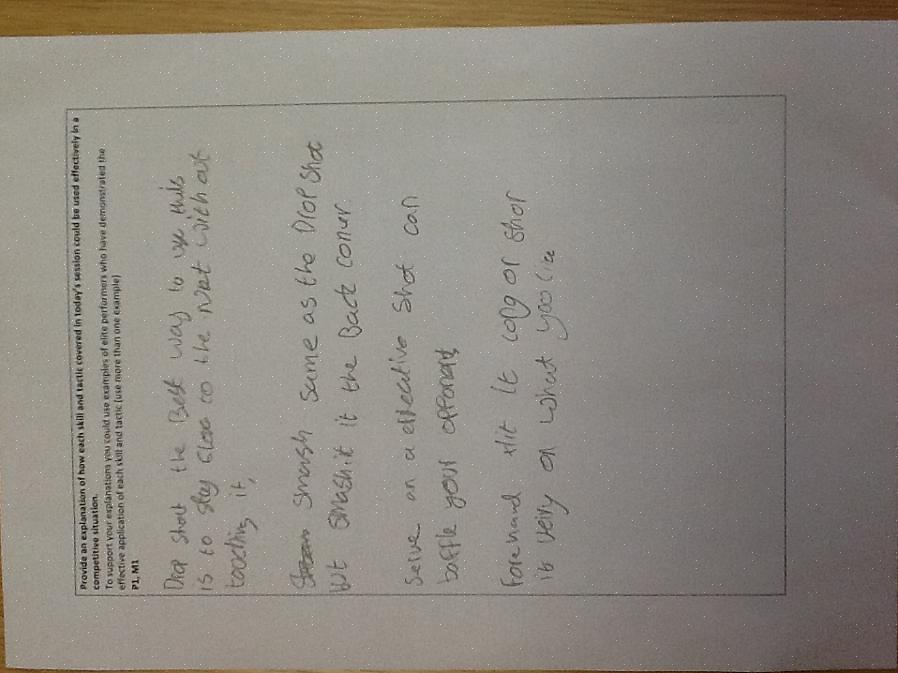 Provide an explanation of how each skill and tactic covered in today's session could be used effectively in a
competitive situation.
To support your explanations you could use examples of elite performers who have demonstrated the
effective application of each skill and tactic (use more than one example)
P1, M1
Drop shot the Best way to use this
is to stay close to the Net with out
touching it,
Smash same as the Drop shot
but smash it it the Back conver
Serve on a effecative Shot can
baffle your opponant
Forehand Hit it long or shor
it very on what yoo like